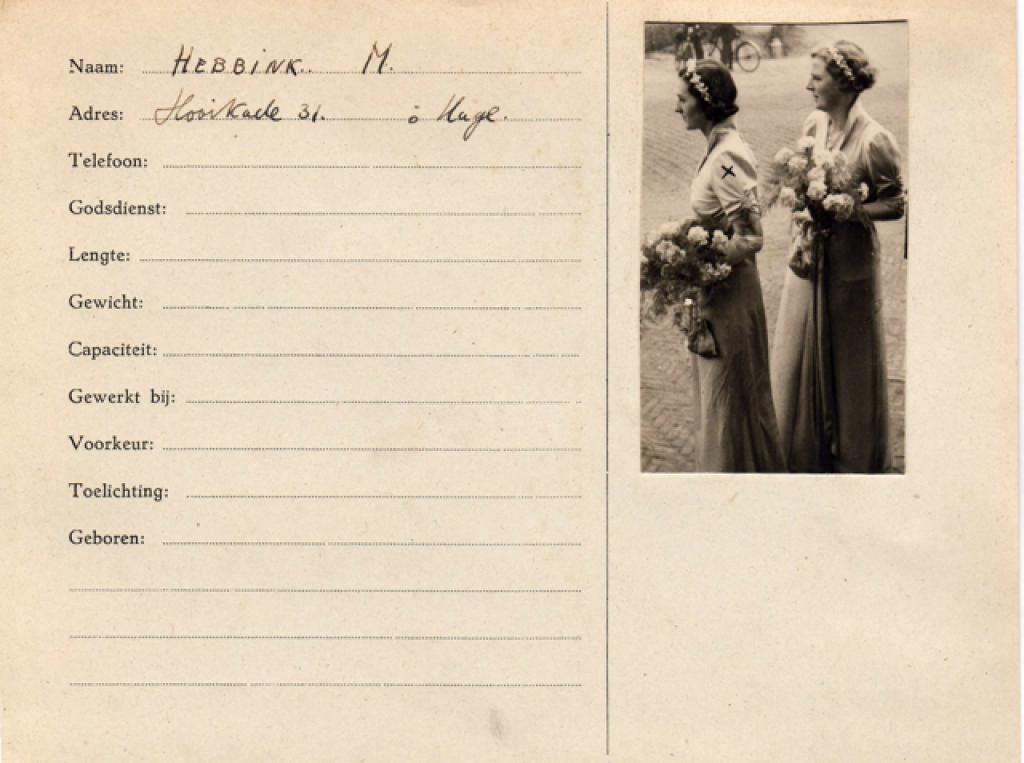 Naam: HEBBINK. M.
Adres: Hooikade 31. Hage.
Telefoon:
Godsdienst:
Lengte:
Gewicht:
Capaciteit:
Gewerkt bij:
Voorkeur:
Toelichting:
Geboren: